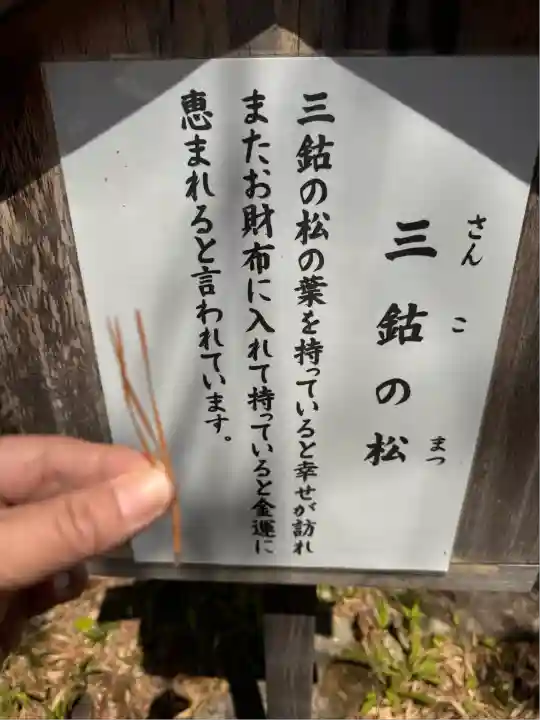 三鈷の松
さんこまつ
三鈷の松の葉を持っていると幸せが訪れ
またお財布に入れて持っていると金運に
恵まれると言われています。